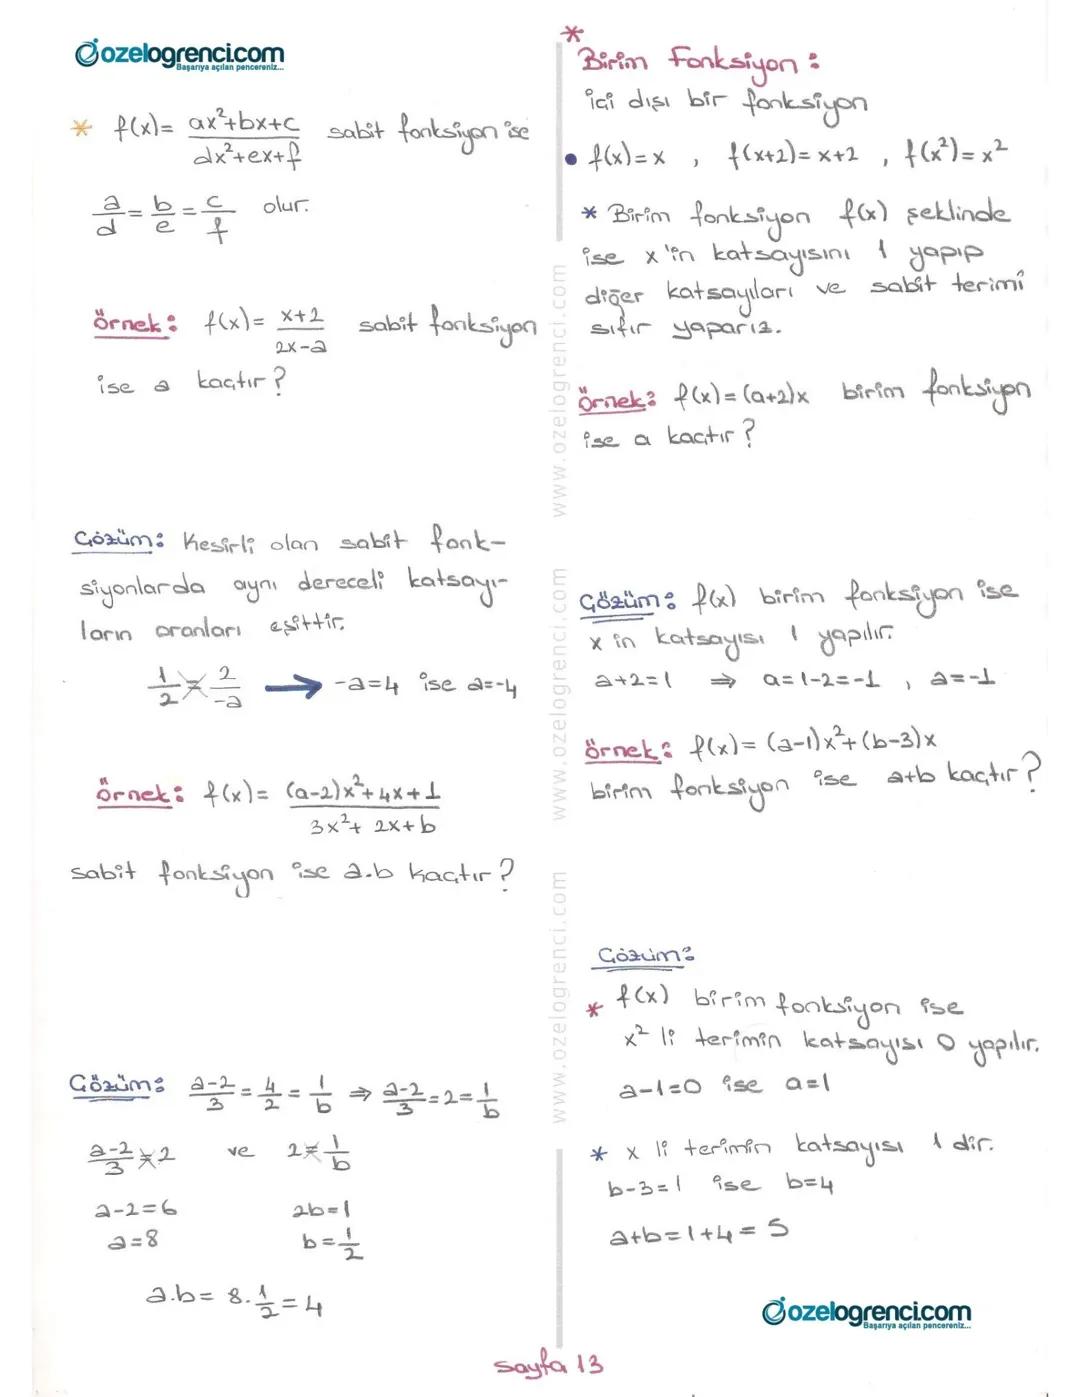 ozelogrenci.com
Başarıya açılan pencereniz...
* f(x)= ax²+bx+c / dx²+ex+f sabit fonksiyon ise
a/d = b/e = c/f olur.
örnek: f(x)= x+2 / 2x-a sabit fonksiyon
ise a kaçtır?
Çözüm: Kesirli olan sabit fonk-
siyonlarda aynı dereceli katsayı-
ların oranları eşittir.
1/2 = 2/-a → -a=4 ise a=-4
örnek: f(x)= (a-2)x²+4x+1 / 3x²+2x+b
sabit fonksiyon ise a.b kaçtır?
Çözüm: a-2/3 = 4/2 = 1/b ⇒ a-2/3 = 2 = 1/b
a-2/3 = 2 ve 2 = 1/b
a-2=6 2b=1
a=8 b=1/2
a.b= 8.1/2 = 4
*
Birim Fonksiyon:
içi dışı bir fonksiyon
• f(x)=x , f(x+2)=x+2 , f(x²)=x²
* Birim fonksiyon f(x) şeklinde
ise x'in katsayısını 1 yapıp
diğer katsayıları ve sabit terimi
sıfır yaparız.
örnek: f(x)=(a+2)x birim fonksiyon
ise a kaçtır?
Çözüm: f(x) birim fonksiyon ise
x in katsayısı 1 yapılır.
a+2=1 ⇒ a=1-2=-1 , a=-1
örnek: f(x)= (a-1)x²+(b-3)x
birim fonksiyon ise a+b kaçtır?
Çözüm:
* f(x) birim fonksiyon ise
x² li terimin katsayısı 0 yapılır.
a-1=0 ise a=1
* x li terimin katsayısı 1 dir.
b-3=1 ise b=4
a+b=1+4=5
ozelogrenci.com
Başarıya açılan pencereniz...
www.ozelogrenci.com www.ozelogrenci.com www.ozelogrenci.com
sayfa 13